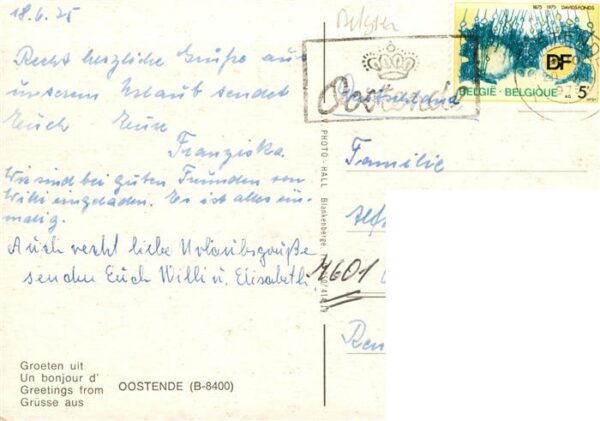 18.6.75
Recht herzliche Grüße aus
unserem Urlaub sendet
Euch Eure
Franziska.
Wir sind bei guten Freunden von
Willi eingeladen. Es ist alles ein-
malig.
Auch recht liebe Urlaubsgrüße
senden Euch Willi u. Elisabeth
Groeten uit
Un bonjour d'
Greetings from
Grüsse aus
OOSTENDE (B-8400)
PHOTO-HALL Blankenberge
Belgien
1875 1975 DAVIDSFONDS
DF
BELGIË-BELGIQUE 5F
Oostende
Deutschland
Familie
7601